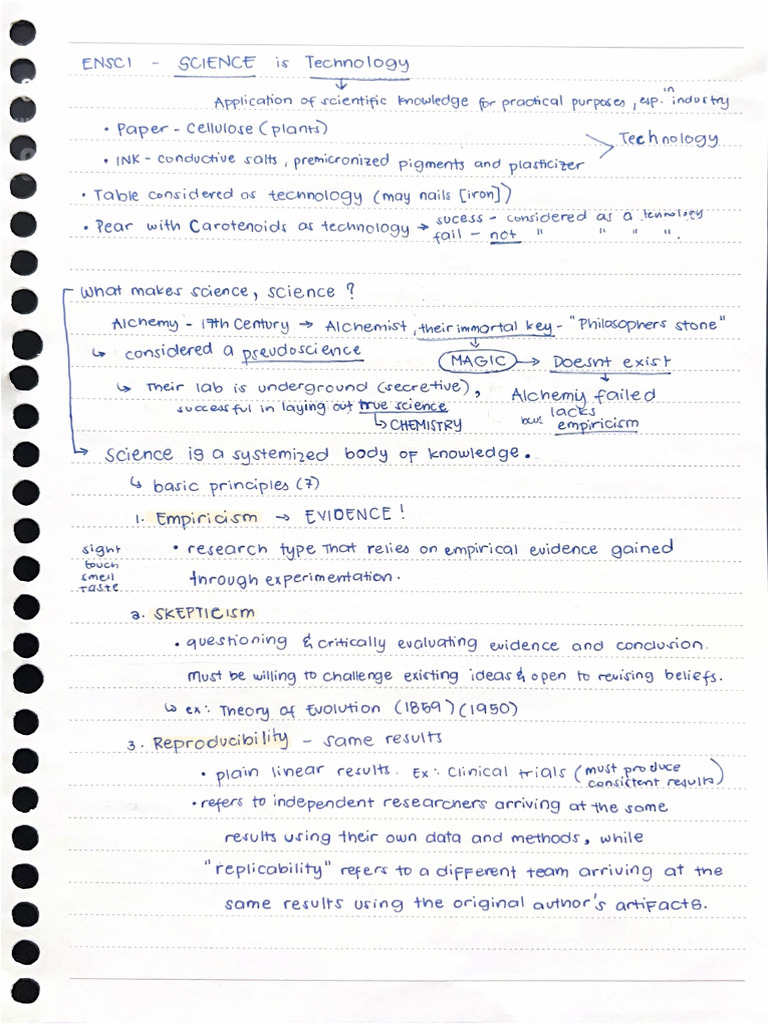 ENSCI - SCIENCE is Technology
Application of scientific knowledge for practical purposes, esp. in industry
• Paper - Cellulose (plants)
Technology
• INK - conductive salts, premicronized pigments and plasticizer
• Table considered as technology (may nails [iron])
• Pear with Carotenoids as technology → sucess - considered as a tennology
fail - not " " " ".
What makes science, science?
Alchemy - 17th Century → Alchemist, their immortal key - "Philosophers stone"
↳ considered a pseudoscience
MAGIC → Doesnt exist
↳ Their lab is underground (secretive),
Alchemy failed
successful in laying out true science
bcus lacks empiricism
↳ CHEMISTRY
→ Science is a systemized body of knowledge.
↳ basic principles (7)
1. Empiricism → EVIDENCE!
sight
touch
smell
taste
• research type that relies on empirical evidence gained
through experimentation.
2. SKEPTICISM
• questioning & critically evaluating evidence and conclusion.
Must be willing to challenge existing ideas & open to revising beliefs.
↳ ex: Theory of Evolution (1859) (1950)
3. Reproducibility - same results
• plain linear results. Ex: Clinical trials (must produce
consistent results)
• refers to independent researchers arriving at the same
results using their own data and methods, while
"replicability" refers to a different team arriving at the
same results using the original author's artifacts.